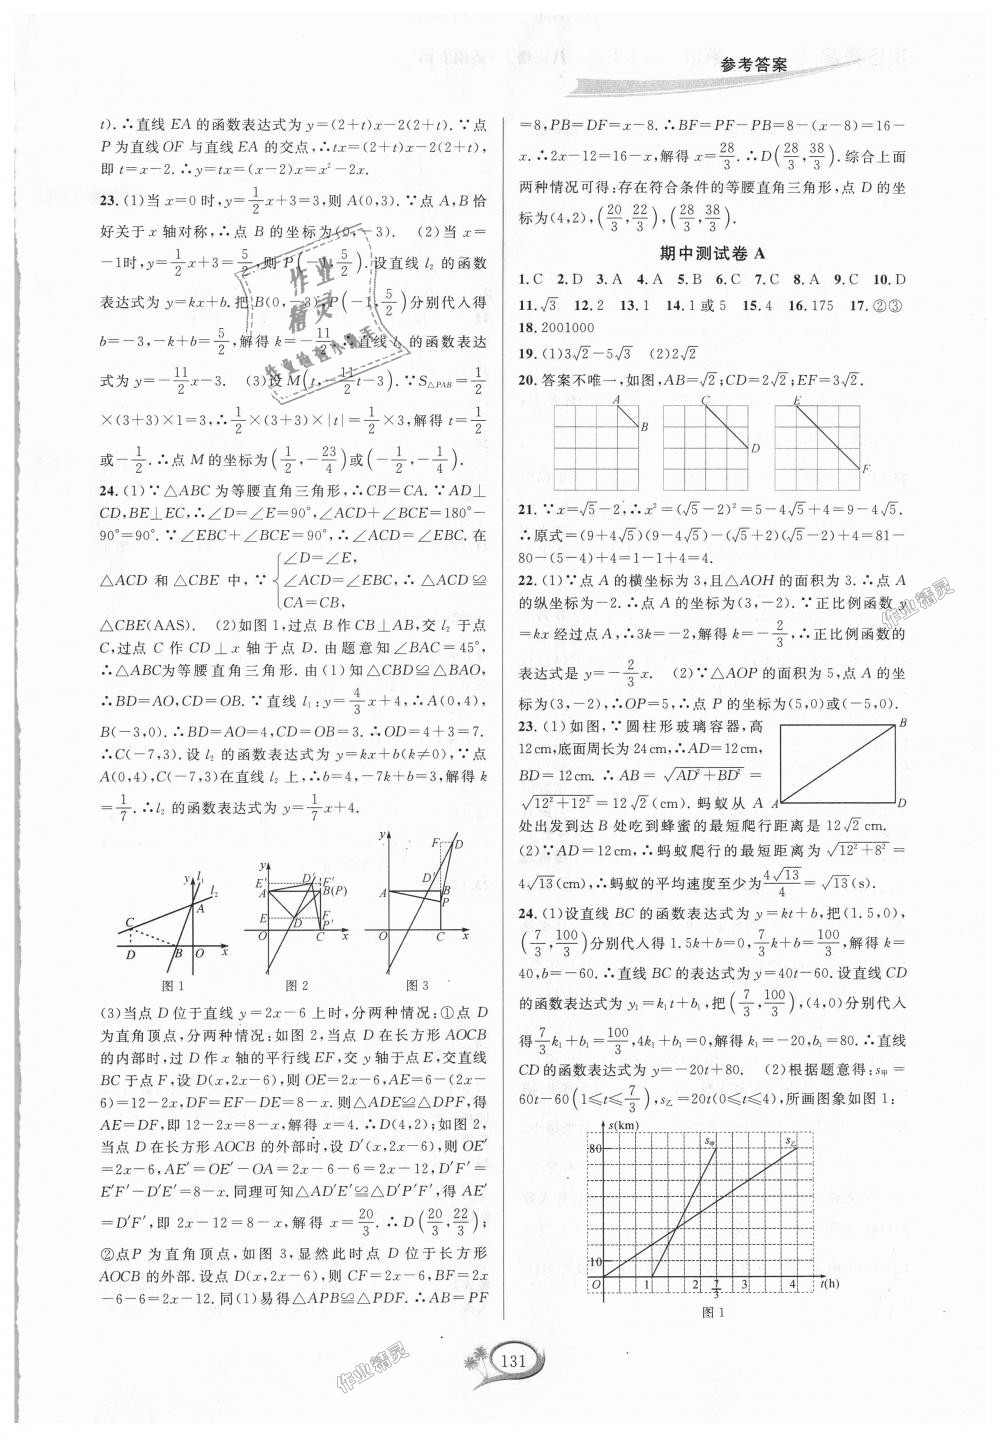 参考答案
t).∴直线EA的函数表达式为y=(2+t)x-2(2+t).∵点
P为直线OF与直线EA的交点,∴tx=(2+t)x-2(2+t),
即t=x-2.∴y=tx=(x-2)x=x²-2x.
23.(1)当x=0时,y=1/2x+3=3,则A(0,3).∵点A,B恰
好关于x轴对称,∴点B的坐标为(0,-3). (2)当x=
-1时,y=1/2x+3=5/2,则P(-1,5/2).设直线l₂的函数
表达式为y=kx+b.把B(0,-3),P(-1,5/2)分别代入得
b=-3,-k+b=5/2,解得k=-11/2.∴直线l₂的函数表达
式为y=-11/2x-3. (3)设M(t,-11/2t-3).∵S△PAB=1/2
×(3+3)×1=3,∴1/2×(3+3)×|t|=1/2×3,解得t=1/2
或-1/2.∴点M的坐标为(1/2,-23/4)或(-1/2,-1/4).
24.(1)∵△ABC为等腰直角三角形,∴CB=CA.∵AD⊥
CD,BE⊥EC,∴∠D=∠E=90°,∠ACD+∠BCE=180°-
90°=90°.∵∠EBC+∠BCE=90°,∴∠ACD=∠EBC.在
△ACD和△CBE中,∵{∠D=∠E,
∠ACD=∠EBC,∴△ACD≌
CA=CB,
△CBE(AAS). (2)如图1,过点B作CB⊥AB,交l₂于点
C,过点C作CD⊥x轴于点D.由题意知∠BAC=45°,
∴△ABC为等腰直角三角形.由(1)知△CBD≌△BAO,
∴BD=AO,CD=OB.∵直线l₁:y=4/3x+4,∴A(0,4),
B(-3,0).∴BD=AO=4,CD=OB=3.∴OD=4+3=7.
∴C(-7,3).设l₂的函数表达式为y=kx+b(k≠0),∵点
A(0,4),C(-7,3)在直线l₂上,∴b=4,-7k+b=3,解得k
=1/7.∴l₂的函数表达式为y=1/7x+4.
y l₁ l₂ A C D B O x
图1
y E′ D′ F′ A B(P) E D F P′ O C x
图2
y F D D′ A B P O C x
图3
(3)当点D位于直线y=2x-6上时,分两种情况:①点D
为直角顶点,分两种情况:如图2,当点D在长方形AOCB
的内部时,过D作x轴的平行线EF,交y轴于点E,交直线
BC于点F,设D(x,2x-6),则OE=2x-6,AE=6-(2x-
6)=12-2x,DF=EF-DE=8-x.则△ADE≌△DPF,得
AE=DF,即12-2x=8-x,解得x=4.∴D(4,2);如图2,
当点D在长方形AOCB的外部时,设D′(x,2x-6),则OE′
=2x-6,AE′=OE′-OA=2x-6-6=2x-12,D′F′=
E′F′-D′E′=8-x.同理可知△AD′E′≌△D′P′F′,得AE′
=D′F′,即2x-12=8-x,解得x=20/3.∴D(20/3,22/3);
②点P为直角顶点,如图3,显然此时点D位于长方形
AOCB的外部.设点D(x,2x-6),则CF=2x-6,BF=2x
-6-6=2x-12.同(1)易得△APB≌△PDF.∴AB=PF
=8,PB=DF=x-8.∴BF=PF-PB=8-(x-8)=16-
x.∴2x-12=16-x,解得x=28/3.∴D(28/3,38/3).综合上面
两种情况可得:存在符合条件的等腰直角三角形,点D的坐
标为(4,2),(20/3,22/3),(28/3,38/3).
期中测试卷A
1.C 2.D 3.A 4.A 5.B 6.C 7.C 8.A 9.C 10.D
11.√3 12.2 13.1 14.1或5 15.4 16.175 17.②③
18.2001000
19.(1)3√2-5√3 (2)2√2
20.答案不唯一,如图,AB=√2;CD=2√2;EF=3√2.
A B C D E F
21.∵x=√5-2,∴x²=(√5-2)²=5-4√5+4=9-4√5.
∴原式=(9+4√5)(9-4√5)-(√5+2)(√5-2)+4=81-
80-(5-4)+4=1-1+4=4.
22.(1)∵点A的横坐标为3,且△AOH的面积为3.∴点A
的纵坐标为-2.∴点A的坐标为(3,-2).∵正比例函数y
=kx经过点A,∴3k=-2,解得k=-2/3.∴正比例函数的
表达式是y=-2/3x. (2)∵△AOP的面积为5,点A的坐
标为(3,-2),∴OP=5,∴点P的坐标为(5,0)或(-5,0).
23.(1)如图,∵圆柱形玻璃容器,高
12cm,底面周长为24cm,∴AD=12cm,
BD=12cm.∴AB=√AD²+BD²=
√12²+12²=12√2(cm).蚂蚁从A
处出发到达B处吃到蜂蜜的最短爬行距离是12√2cm.
A B D
(2)∵AD=12cm,∴蚂蚁爬行的最短距离为√12²+8²=
4√13(cm),∴蚂蚁的平均速度至少为4√13/4=√13(s).
24.(1)设直线BC的函数表达式为y=kt+b,把(1.5,0),
(7/3,100/3)分别代入得1.5k+b=0,7/3k+b=100/3,解得k=
40,b=-60.∴直线BC的表达式为y=40t-60.设直线CD
的函数表达式为y₁=k₁t+b₁,把(7/3,100/3),(4,0)分别代入
得7/3k₁+b₁=100/3,4k₁+b₁=0,解得k₁=-20,b₁=80.∴直线
CD的函数表达式为y=-20t+80. (2)根据题意得:s甲=
60t-60(1≤t≤7/3),s乙=20t(0≤t≤4),所画图象如图1:
s(km) s甲 s乙
80
10
O 1 2 7/3 3 4 t(h)
图1
131
作业精灵
作业检查小助手
作业精灵
作业精灵